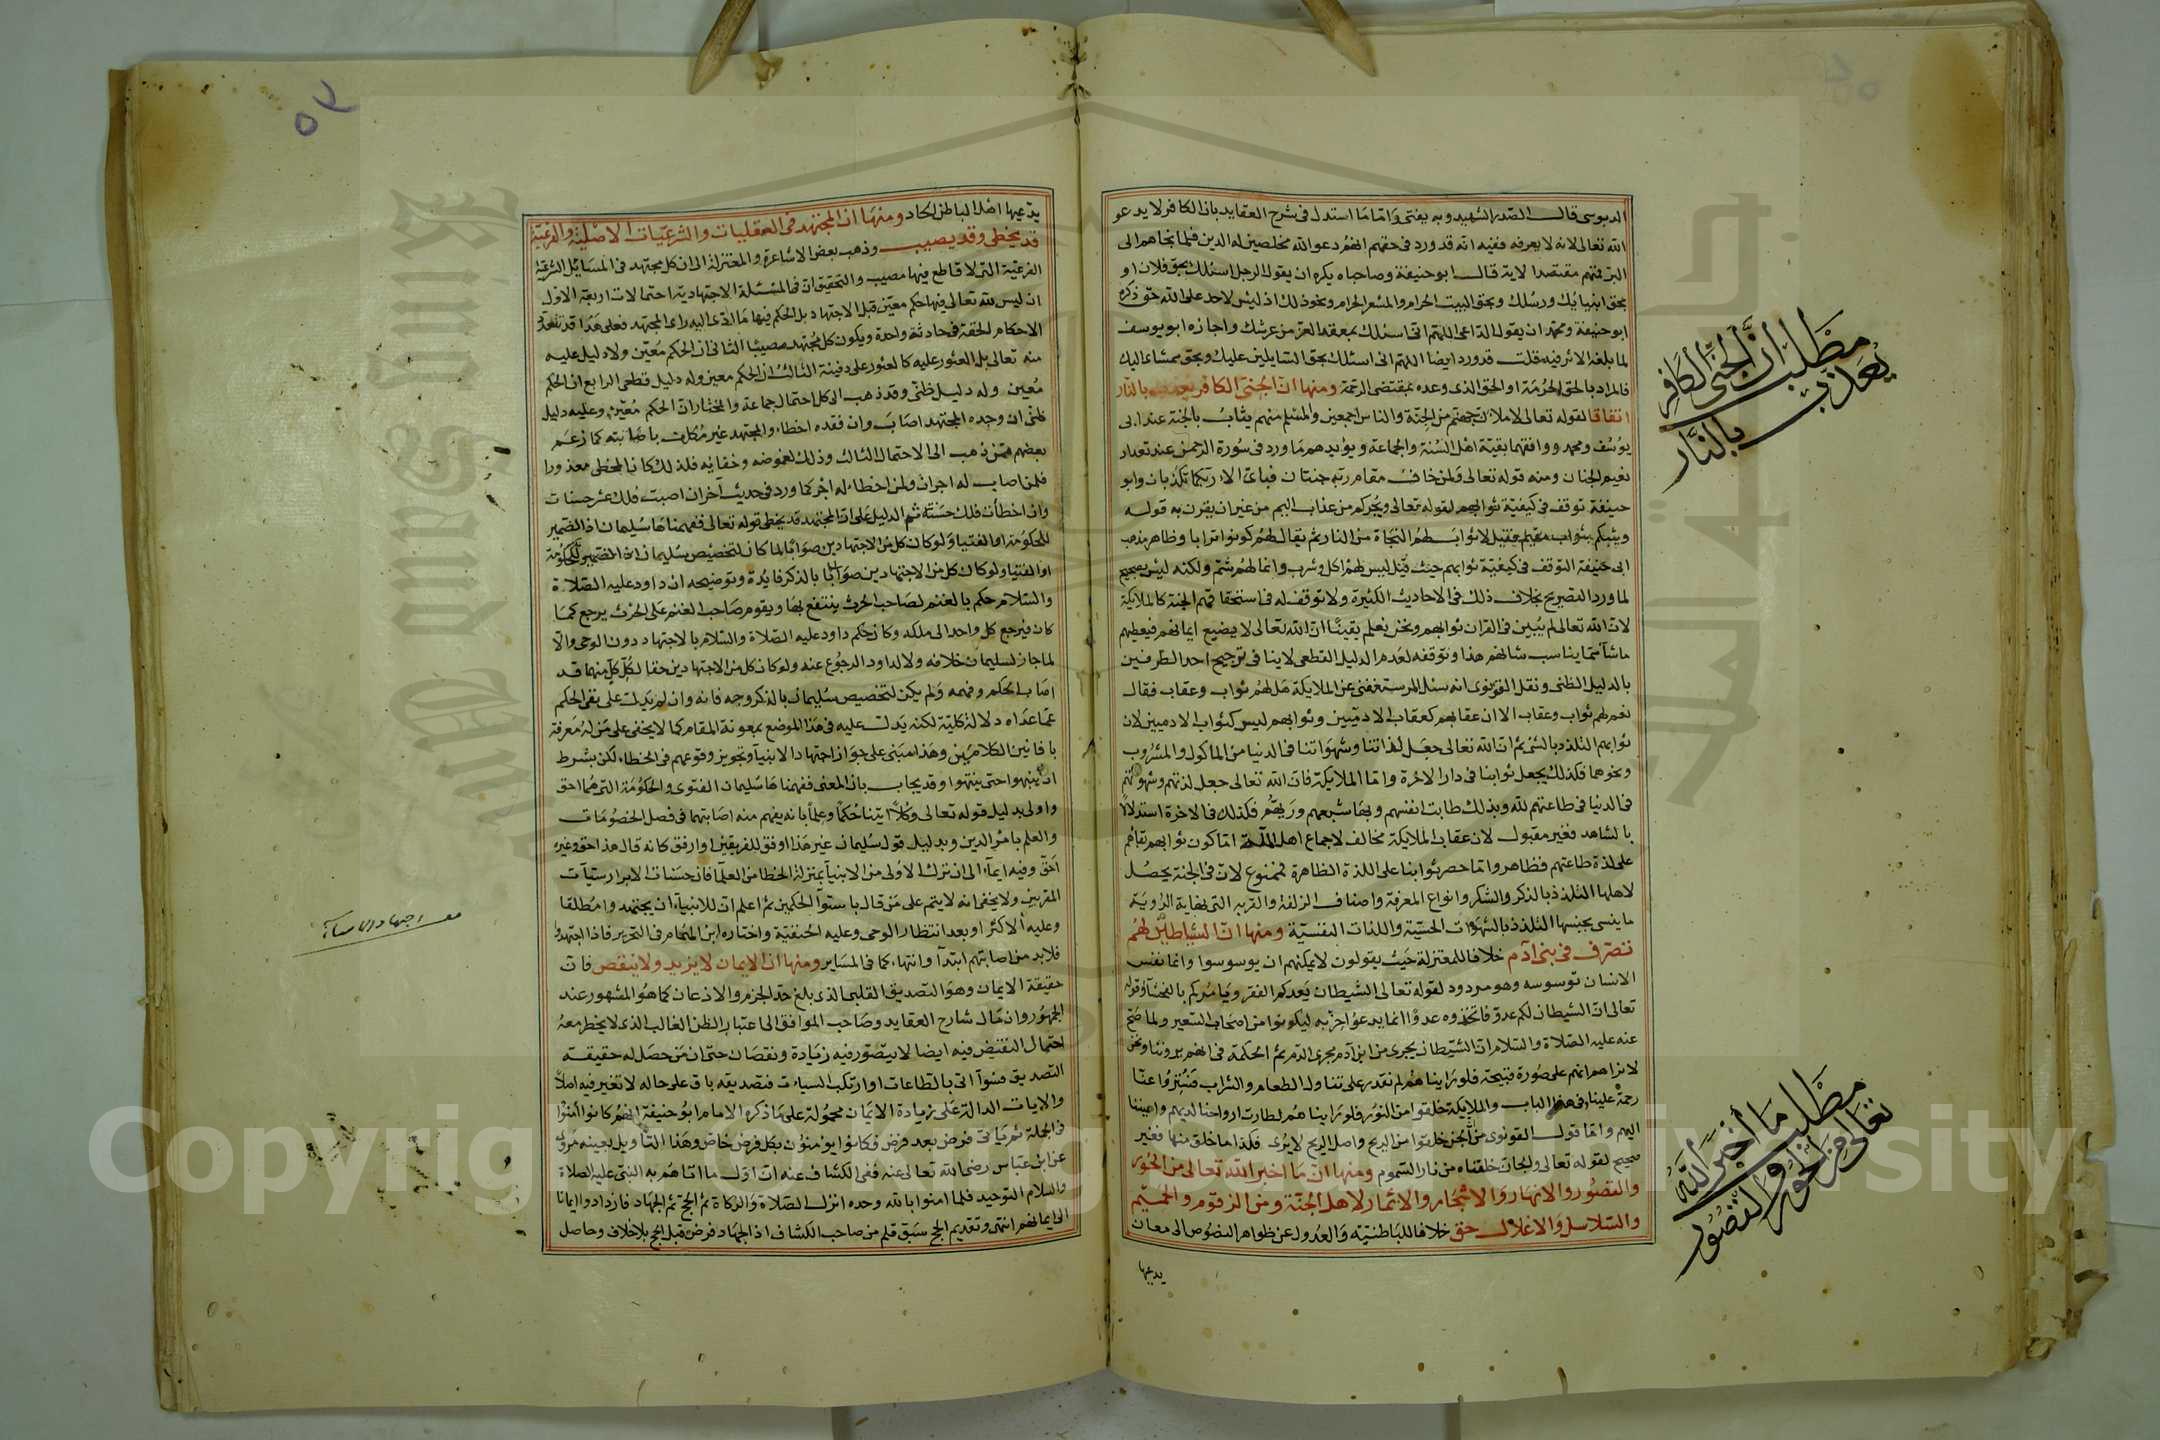 الدبوسي قال الصدر الشهيد وبه يفتى واما ما استدل في شرح العقايد بان الكافر لا يدعو
الله تعالى لانه لا يعرفه ففيه انه قد ورد في حقهم انهم دعوا الله مخلصين له الدين فلما نجاهم الى
البر فمنهم مقتصد الاية قال ابو حنيفة وصاحباه يكره ان يقول الرجل اسئلك بحق فلان او
بحق انبيائك ورسلك وبحق البيت الحرام والمشعر الحرام ونحو ذلك اذ ليس لاحد على الله حق وكره
ابو حنيفة ومحمد ان يقول الداعي اللهم اني اسئلك بمعقد العز من عرشك واجازه ابو يوسف
لما بلغه الاثر فيه قلت قد ورد ايضا اللهم اني اسئلك بحق السايلين عليك وبحق ممشاي اليك
فالمراد بالحق الحرمة او الحق الذي وعده بمقتضى الرحمة ومنها ان الجني الكافر يعذب بالنار
اتفاقا لقوله تعالى لاملان جهنم من الجنة والناس اجمعين والمسلم منهم يثاب بالجنة عند ابي
يوسف ومحمد ووافقهما بقية اهل السنة والجماعة ويؤيدهم ما ورد في سورة الرحمن عند تعداد
نعيم الجنان ومنه قوله تعالى ولمن خاف مقام ربه جنتان فباي الاء ربكما تكذبان وابو
حنيفة توقف في كيفية ثوابهم لقوله تعالى ويجركم من عذاب اليم من غير ان يقرن به قوله
ويثبكم بثواب مقيم فقيل لا ثواب لهم الا النجاة من النار ثم يقال لهم كونوا ترابا وظاهر مذهب
ابي حنيفة التوقف في كيفية ثوابهم حيث قيل ليس لهم اكل وشرب وانما لهم شم ولكنه ليس بصحيح
لما ورد التصريح بخلاف ذلك في الاحاديث الكثيرة ولا توقف له في استحقاقهم الجنة كالملائكة
لان الله تعالى لم يبين في القران ثوابهم ونحن نعلم يقينا ان الله تعالى لا يضيع ايمانهم فيعطيهم
ما شاء مما يناسب شانهم هذا وتوقفه لعدم الدليل القطعي لا ينافي ترجيح احد الطرفين
بالدليل الظني ونقل القونوي انه سئل الرستغفني عن الملايكة هل لهم ثواب وعقاب فقال
نعم لهم ثواب وعقاب الا ان عقابهم كعقاب الادميين وثوابهم ليس كثواب الادميين لان
ثوابهم التلذذ بالشم ثم ان الله تعالى جعل لذاتنا وشهواتنا في الدنيا من الماكول والمشروب
ونحوهما فكذلك يجعل ثوابنا في دار الاخرة واما الملايكة فان الله تعالى جعل لذتهم وشهوتهم
في الدنيا في طاعتهم لله وبذلك طابت انفسهم وبها شبعهم وريهم فكذلك في الاخرة استدلالا
بالشاهد فغير مقبول لان عقاب الملايكة مخالف لاجماع اهل الملة اما كون ثوابهم بقاءهم
على لذة طاعتهم فظاهر واما حصر ثوابنا على اللذة الظاهرة فممنوع لان في الجنة يحصل
لاهلها التلذذ بالذكر والشكر وانواع المعرفة واصناف الزلفة والقربة التي نهاية الروية
ما ينسى بجنبها التلذذ بالشهوات الحسية واللذات النفسية ومنها ان الشياطين لهم
تصرف في بني آدم خلافا للمعتزلة حيث يقولون لا يمكنهم ان يوسوسوا وانما نفس
الانسان توسوسه وهو مردود لقوله تعالى الشيطان يعدكم الفقر ويامركم بالفحشاء وقوله
تعالى ان الشيطان لكم عدو فاتخذوه عدوا انما يدعو حزبه ليكونوا من اصحاب السعير ولما صح
عنه عليه الصلاة والسلام ان الشيطان يجري من ابن آدم مجرى الدم ثم الحكمة في انهم يروننا ونحن
لا نراهم انهم على صورة قبيحة فلو رايناهم لم نقدر على تناول الطعام والشراب فستروا عنا
رحمة علينا في هذا الباب والملايكة خلقوا من النور فلو رايناهم لطارت ارواحنا لديهم واعيننا
اليهم واما قول القونوي من ان الجن خلقوا من الريح واصل الريح لا يرى فكذا ما خلق منها فغير
صحيح لقوله تعالى والجان خلقناه من نار السموم ومنها ان ما اخبر الله تعالى من الحور
والقصور والانهار والاشجار والاثمار لاهل الجنة ومن الزقوم والحميم
والسلاسل والاغلال حق خلافا للباطنية والعدول عن ظواهر النصوص الى معان
يدعيها
مطلب ان الجني الكافر
يعذب بالنار
مطلب ما أخبر الله
تعالى من الحور والقصور
٥٢
يدعيها اهل الباطن الحاد ومنها ان المجتهد في العقليات والشرعيات الاصلية والفرعية
قد يخطي وقد يصيب وذهب بعض الاشاعرة والمعتزلة الى ان كل مجتهد في المسايل الشرعية
الفرعية التي لا قاطع فيها مصيب والتحقيق ان في المسئلة الاجتهادية احتمالات اربعة الاول
ان ليس لله تعالى فيها حكم معين قبل الاجتهاد بل الحكم فيها ما ادى اليه راي المجتهد فعلى هذا قد تتعدد
الاحكام الحقة في حادثة واحدة ويكون كل مجتهد مصيبا الثاني ان الحكم معين ولا دليل عليه
منه تعالى بل العثور عليه كالعثور على دفينة الثالث ان الحكم معين وله دليل قطعي الرابع ان الحكم
معين وله دليل ظني وقد ذهب الى كل احتمال جماعة والمختار ان الحكم معين وعليه دليل
ظني ان وجده المجتهد اصاب وان فقده اخطاء والمجتهد غير مكلف باصابته كما زعم
بعضهم ممن ذهب الى الاحتمال الثالث وذلك لغموضه وخفائه فلذلك كان المخطي معذورا
فلمن اصاب له اجران ولمن اخطاء له اجر كما ورد في حديث آخر ان اصبت فلك عشر حسنات
وان اخطأت فلك حسنة ثم الدليل على ان المجتهد قد يخطي قوله تعالى ففهمناها سليمان اذ الضمير
للحكومة او الفتيا ولو كان كل من الاجتهادين صوابا لما كان لتخصيص سليمان اذ الضمير للحكومة
او الفتيا ولو كان كل من الاجتهادين صوابا لما بالذكر فايدة وتوضيحه ان داود عليه الصلاة
والسلام حكم بالغنم لصاحب الحرث ينتفع بها ويقوم صاحب الغنم على الحرث يرجع كما
كان فيرجع كل واحد الى ملكه وكان حكم داود عليه الصلاة والسلام بالاجتهاد دون الوحي والا
لما جاز لسليمان خلافه ولا لداود الرجوع عنه ولو كان كل من الاجتهادين حقا لكان كل منهما قد
اصاب الحكم وفهمه ولم يكن لتخصيص سليمان بالذكر وجه فانه وان لم يدل على نفي الحكم
عما عداه دلالة كلية لكنه يدل عليه في هذا الموضع بمعونة المقام كما لا يخفى على من له معرفة
بافانين الكلام وهذا مبني على جواز اجتهاد الانبيا وتجويز وقوعهم في الخطاء لكن بشرط
ان ينبهوا حتى ينتهوا وقد يجاب بان المعنى ففهمناها سليمان الفتوى والحكومة التي هما احق
واولى بدليل قوله تعالى وكلا اتينا حكما وعلما بانه يفهم منه اصابتهما في فصل الخصومات
والعلم بامر الدين وبدليل قول سليمان غير هذا اوفق للفريقين او ارفق كانه قال هذا حق وغيره
احق وفيه ايماء الى ان ترك الاولى من الانبياء بمنزلة الخطا من العلما فان حسنات الابرار سيآت
المقربين ولا يخفى انه لا يتم على من قال باستوا الحكمين ثم اعلم ان للانبياء ان يجتهدوا مطلقا
وعليه الاكثر او بعد انتظار الوحي وعليه الحنفية واختاره ابن الهمام في التحرير فاذا اجتهدوا
فلابد من اصابتهم ابتداء وانتهاء كما في المساير ومنها ان الايمان لا يزيد ولا ينقص فان
حقيقة الايمان وهو التصديق القلبي الذي بلغ حد الجزم والاذعان كما هو المشهور عند
الجمهور وان مال شارح العقايد وصاحب المواقف الى اعتبار الظن الغالب الذي لا يخطر معه
احتمال النقيض فيه ايضا لا يتصور فيه زيادة ونقصان حتى ان من حصل له حقيقة
التصديق فسوآ اتى بالطاعات او ارتكب السيات فتصديقه باق على حاله لا تغير فيه اصلا
والايات الدالة على زيادة الايمان محمولة على ما ذكره الامام ابو حنيفة انهم كانوا آمنوا
في الجملة ثم ياتي فرض بعد فرض فكانوا يومنون بكل فرض خاص وهذا التاويل بعينه مروي
عن ابن عباس رضي الله تعالى عنه ففي الكشاف عنه ان اول ما اتاهم به النبي عليه الصلاة
والسلام التوحيد فلما امنوا بالله وحده انزل الصلاة والزكاة ثم الحج ثم الجهاد فازدادوا ايمانا
الى ايمانهم انتهى وتقديم الحج سبق قلم من صاحب الكشاف اذ الجهاد فرض قبل الحج بلا خلاف وحاصل
Copyright © King Saud University